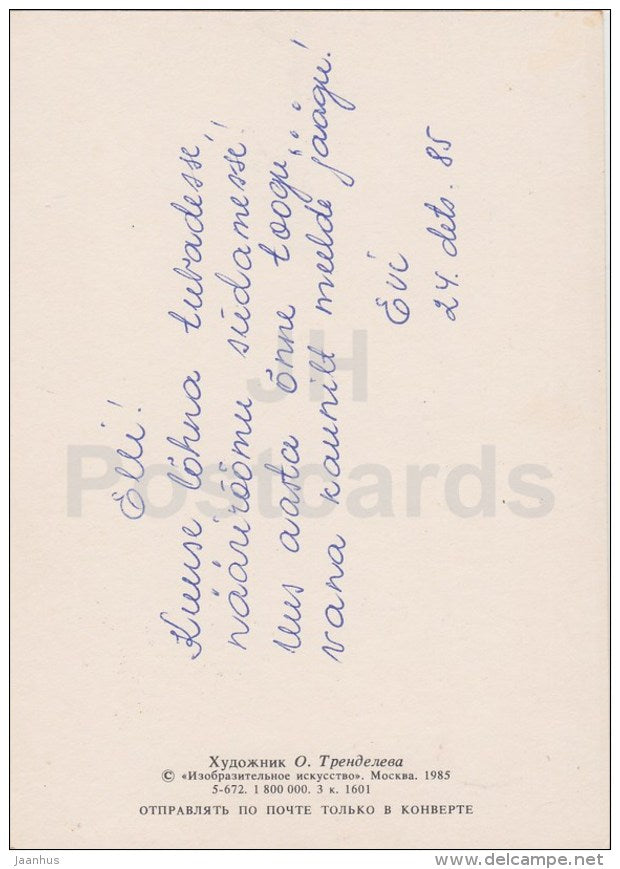 Elli!
Kuuse lõhna tubadesse,
nääri rõõmu südamesse!
Uus aasta õnne toogu,
vana kaunilt meelde jäägu!
Evi
24. dets. 85
JH
Postcards
Художник О. Тренделева
© «Изобразительное искусство». Москва. 1985
5-672. 1 800 000. 3 к. 1601
ОТПРАВЛЯТЬ ПО ПОЧТЕ ТОЛЬКО В КОНВЕРТЕ
Jaanhus
www.delcampe.net